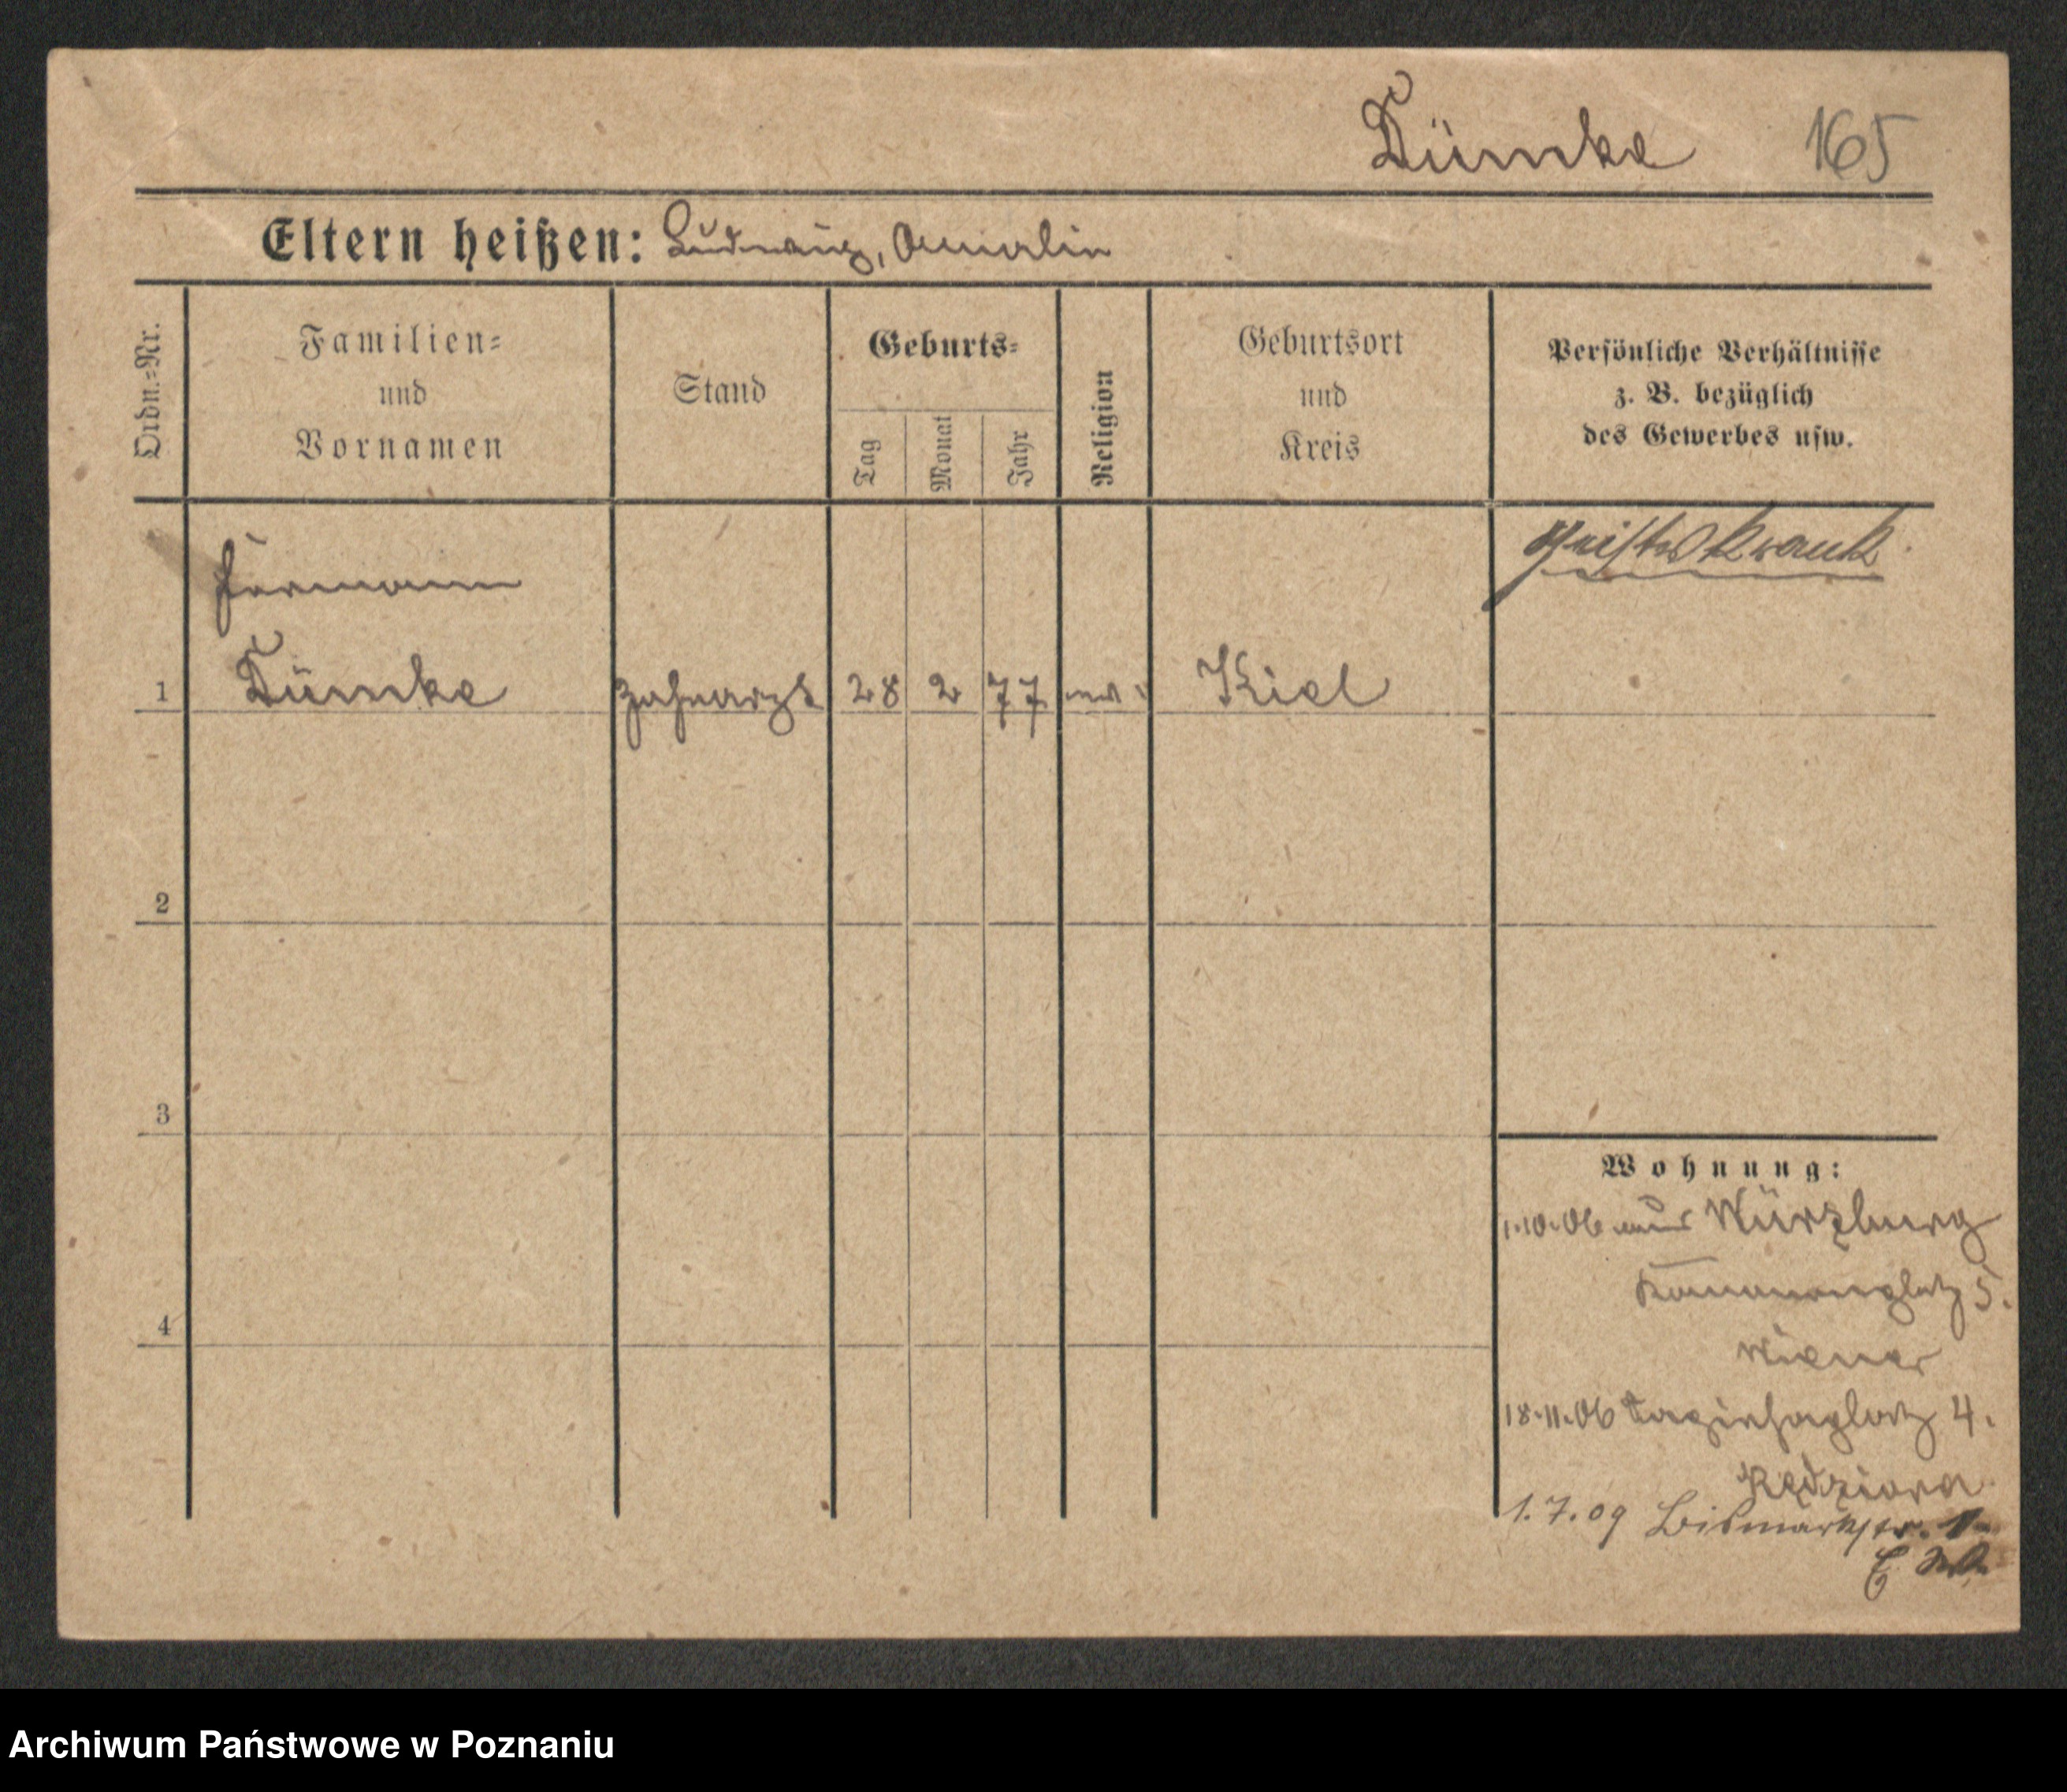 Dümke 165
Eltern heißen: Ludwig, Amalie
Ordn.=Nr.
Familien=
und
Vornamen
Stand
Geburts=
Tag
Monat
Jahr
Religion
Geburtsort
und
Kreis
Persönliche Verhältnisse
z. B. bezüglich
des Gewerbes usw.
Geisteskrank
Hermann
1 Dümke Zahnarzt 28 2 77 ev. Kiel
2
3
4
Wohnung:
1.10.06 aus Würzburg
5.
Wiener
18.11.06 4.
Kędziora
1.7.09 Bismarkstr. 1
Archiwum Państwowe w Poznaniu